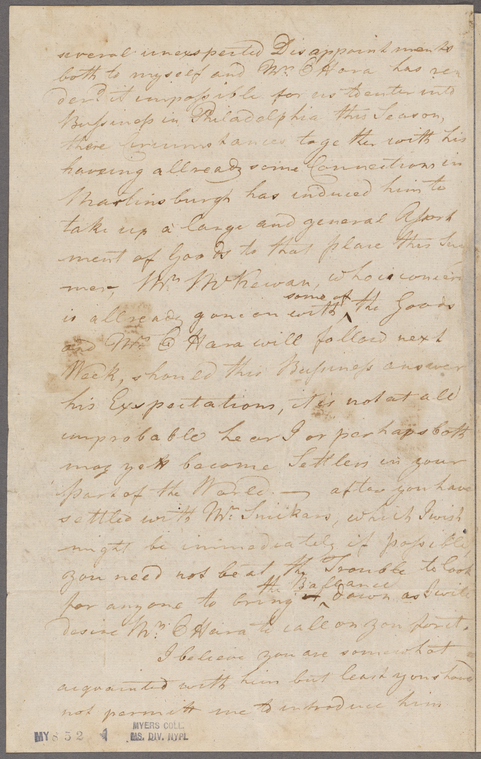 several unexpected Disappointments
both to myself and Mr. OHara has re
derd it impossible for us to enter into
Bussiness in Philadelphia this Season,
these Circumstances together with his
having allready some Connections in
Martinsburgh has induced him to
take up a large and general Assort
ment of Goods to that place this Sum
mer, Mr. McKewan, who is concern
is allready gone on with some of the Goods
and Mr. OHara will follow next
Week, should this Bussiness answer
his Exspectations, it is not at all
improbable he or I or perhaps both
may yett become Settlers in your
part of the World — after you have
settled with Mr. Snickers, which I wish
might be immediately if possible,
you need not be at the Trouble to look
for anyone to bring the Ballance down as I will
desire Mr. OHara to call on you for it.
I believe you are somewhat
acquainted with him but least you should
not permitt me to introduce him
MY 852
MYERS COLL.
MS. DIV. NYPL